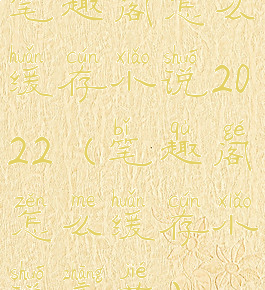 笔趣阁怎么
huǎn cún xiǎo shuō
缓存小说20
bǐ qù gé
22（笔趣阁
zěn me huǎn cún xiǎo
怎么缓存小
shuō zhāng jié